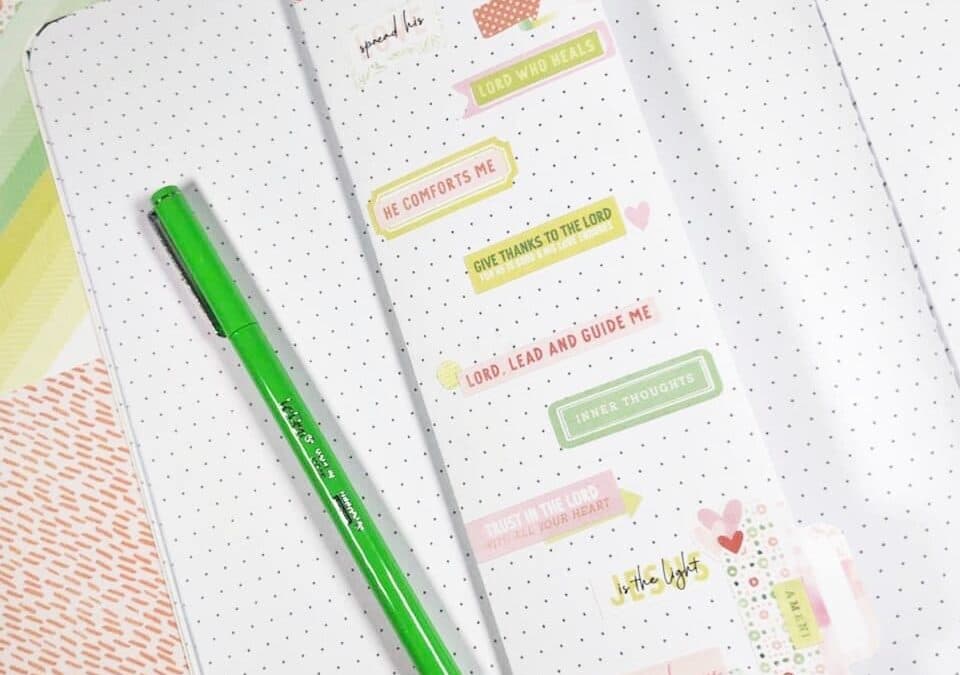 spread his
LOVE
LORD WHO HEALS
HE COMFORTS ME
GIVE THANKS TO THE LORD
LORD, LEAD AND GUIDE ME
INNER THOUGHTS
TRUST IN THE LORD
WITH ALL YOUR HEART
JESUS
is the light
AMEN!